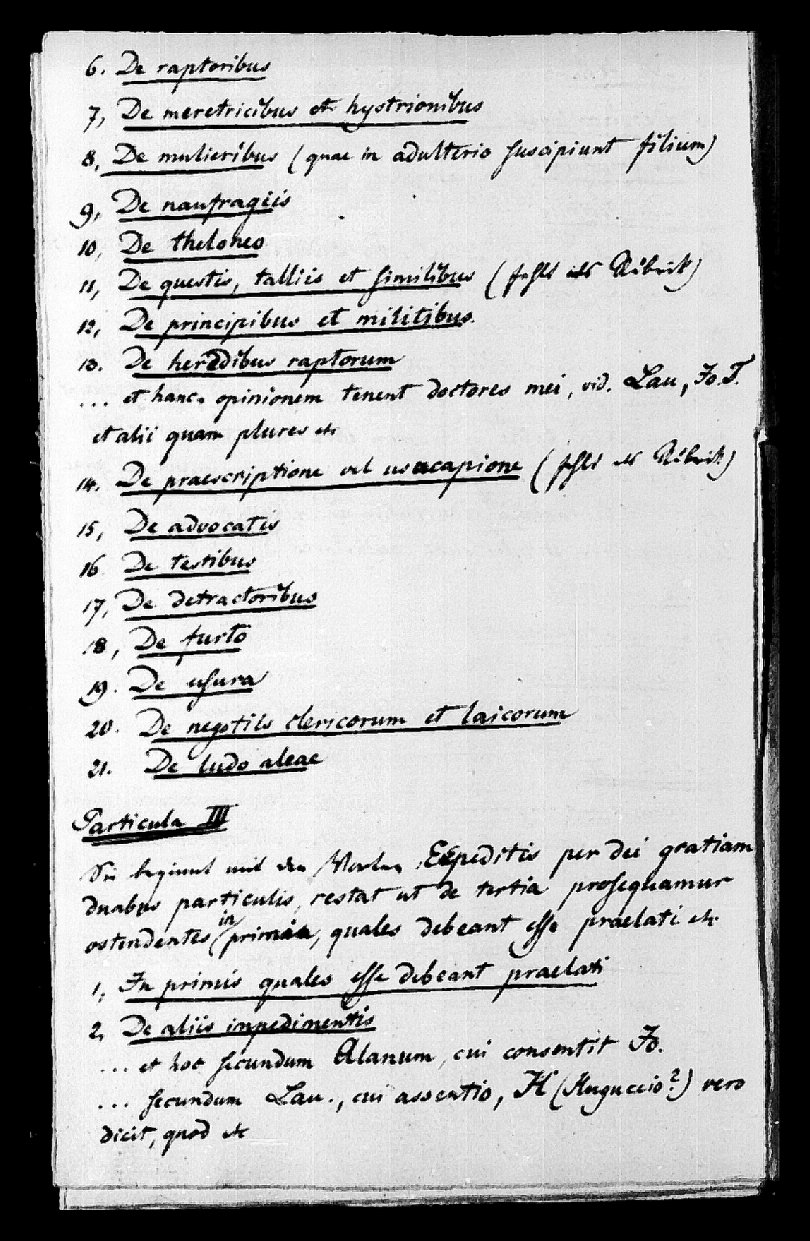 6. De raptoribus
7, De meretricibus et hystrionibus
8, De mulieribus (quae in adulterio suscipiunt filium)
9, De naufragiis
10, De theloneo
11, De questis, talliis et similibus (fehlt als Rubrik)
12, De principibus et militibus.
13. De heredibus raptorum
... et hanc opinionem tenent doctores mei, vid. Lau, Jo. T.
et alii quam plures etc
14. De praescriptione vel usucapione (fehlt als Rubrik)
15, De advocatis
16 De testibus
17, De detractoribus
18, De furto
19. De usura
20. De negotiis clericorum et laicorum
21. De ludo aleae
Particula III
Sie beginnt mit den Worten: Expeditis per dei gratiam
duabus particulis, restat ut de tertia prosequamur
ostendentes in primis, quales debeant esse praelati etc
1, In primis quales esse debeant praelati
2, De aliis inpedimentis
... et hoc secundum Alanum, cui consentit Jo.
... secundum Lau., cui assentio, H (Huguccio?) vero
dicit, quod etc